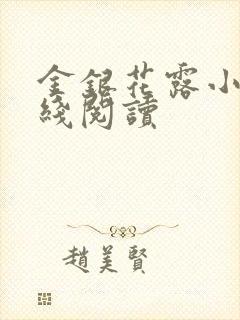 金銀花露小
綫閱讀
趙美賢